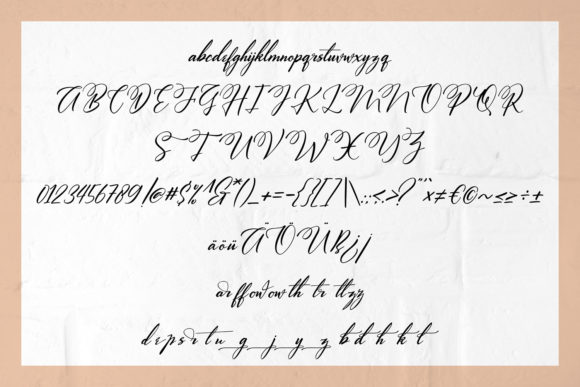 abcdefghijklmnopqrstuvwxyzq
ABCDEFGHIJKLMNOPQR
STUVWXYZ
0123456789!@#$%^&*()_+=-{}[]/|\:;<.>?"'` ×≠€©~≤≥÷±
äöüÄÖÜßjj
ar ff ow ow th tr tt zz
d e p s r t u g j y z b d h k l t